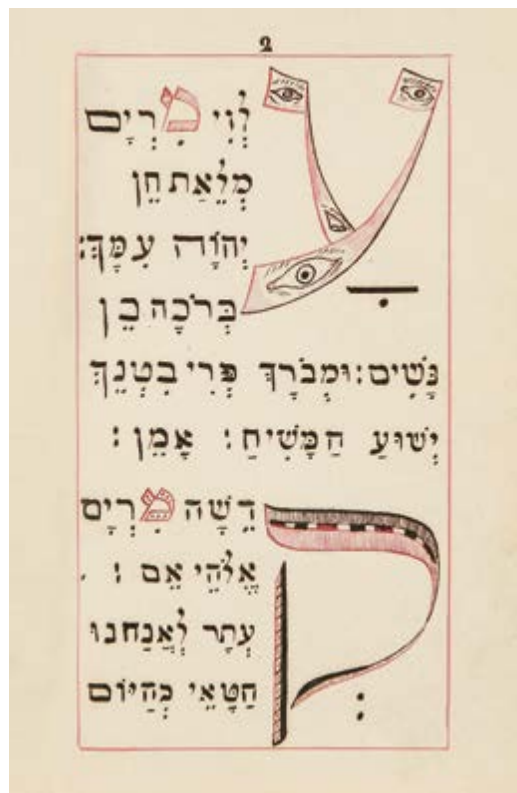 2
עָלְוִי מִרְיָם
מְלֵאַת חֵן
יְהוָֹה עִמָּךְ:
בְּרֹכָה בֵן
נָּשִׁים: וּמְבֹרָךְ פְּרִי בִטְנֵךְ
יְשׁוּעַ הַמָּשִׁיחַ: אָמֵן:
קְדֵשָׁה מִרְיָם
אֱלֹהֵי אֵם:
עְתָר לְאֲנַחנוּ
חַטָּאֵי כְּהַיּוֹם